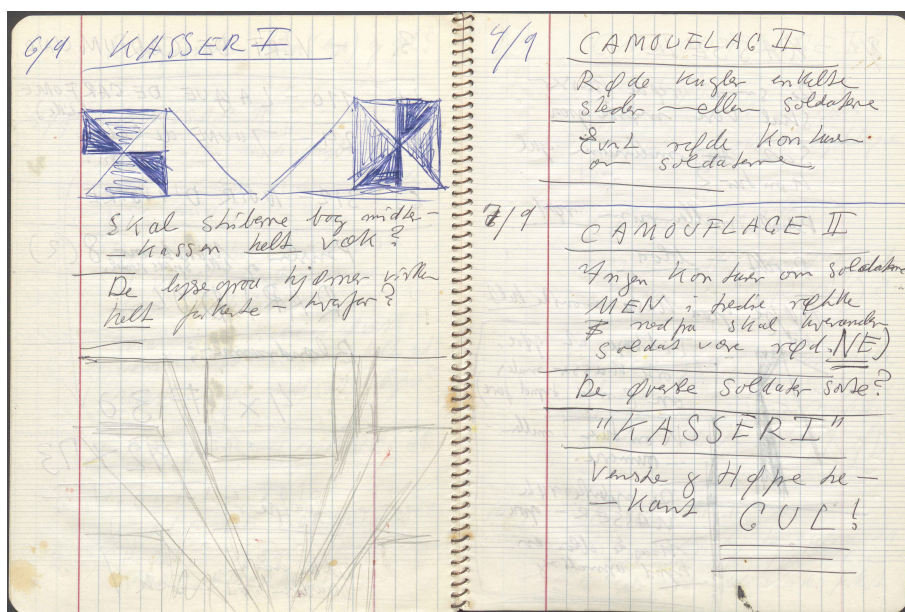 6/9 KASSER I
Skal striberne bag midter-
- kassen helt væk?
De lysegrå hjørner virker
helt forkerte - hvorfor?
4/9 CAMOUFLAG II
Røde kugler enkelte
steder - ellem soldaterne
Evnt røde konturer
om soldaterne
7/9 CAMOUFLAGE II
Ingen konturer om soldaterne
MEN i tredie række
nedfra skal hveranden
soldat være rød. NEJ
De øverste soldater sorte?
"KASSER I"
Venstre & Højre tre-
- kant GUL!